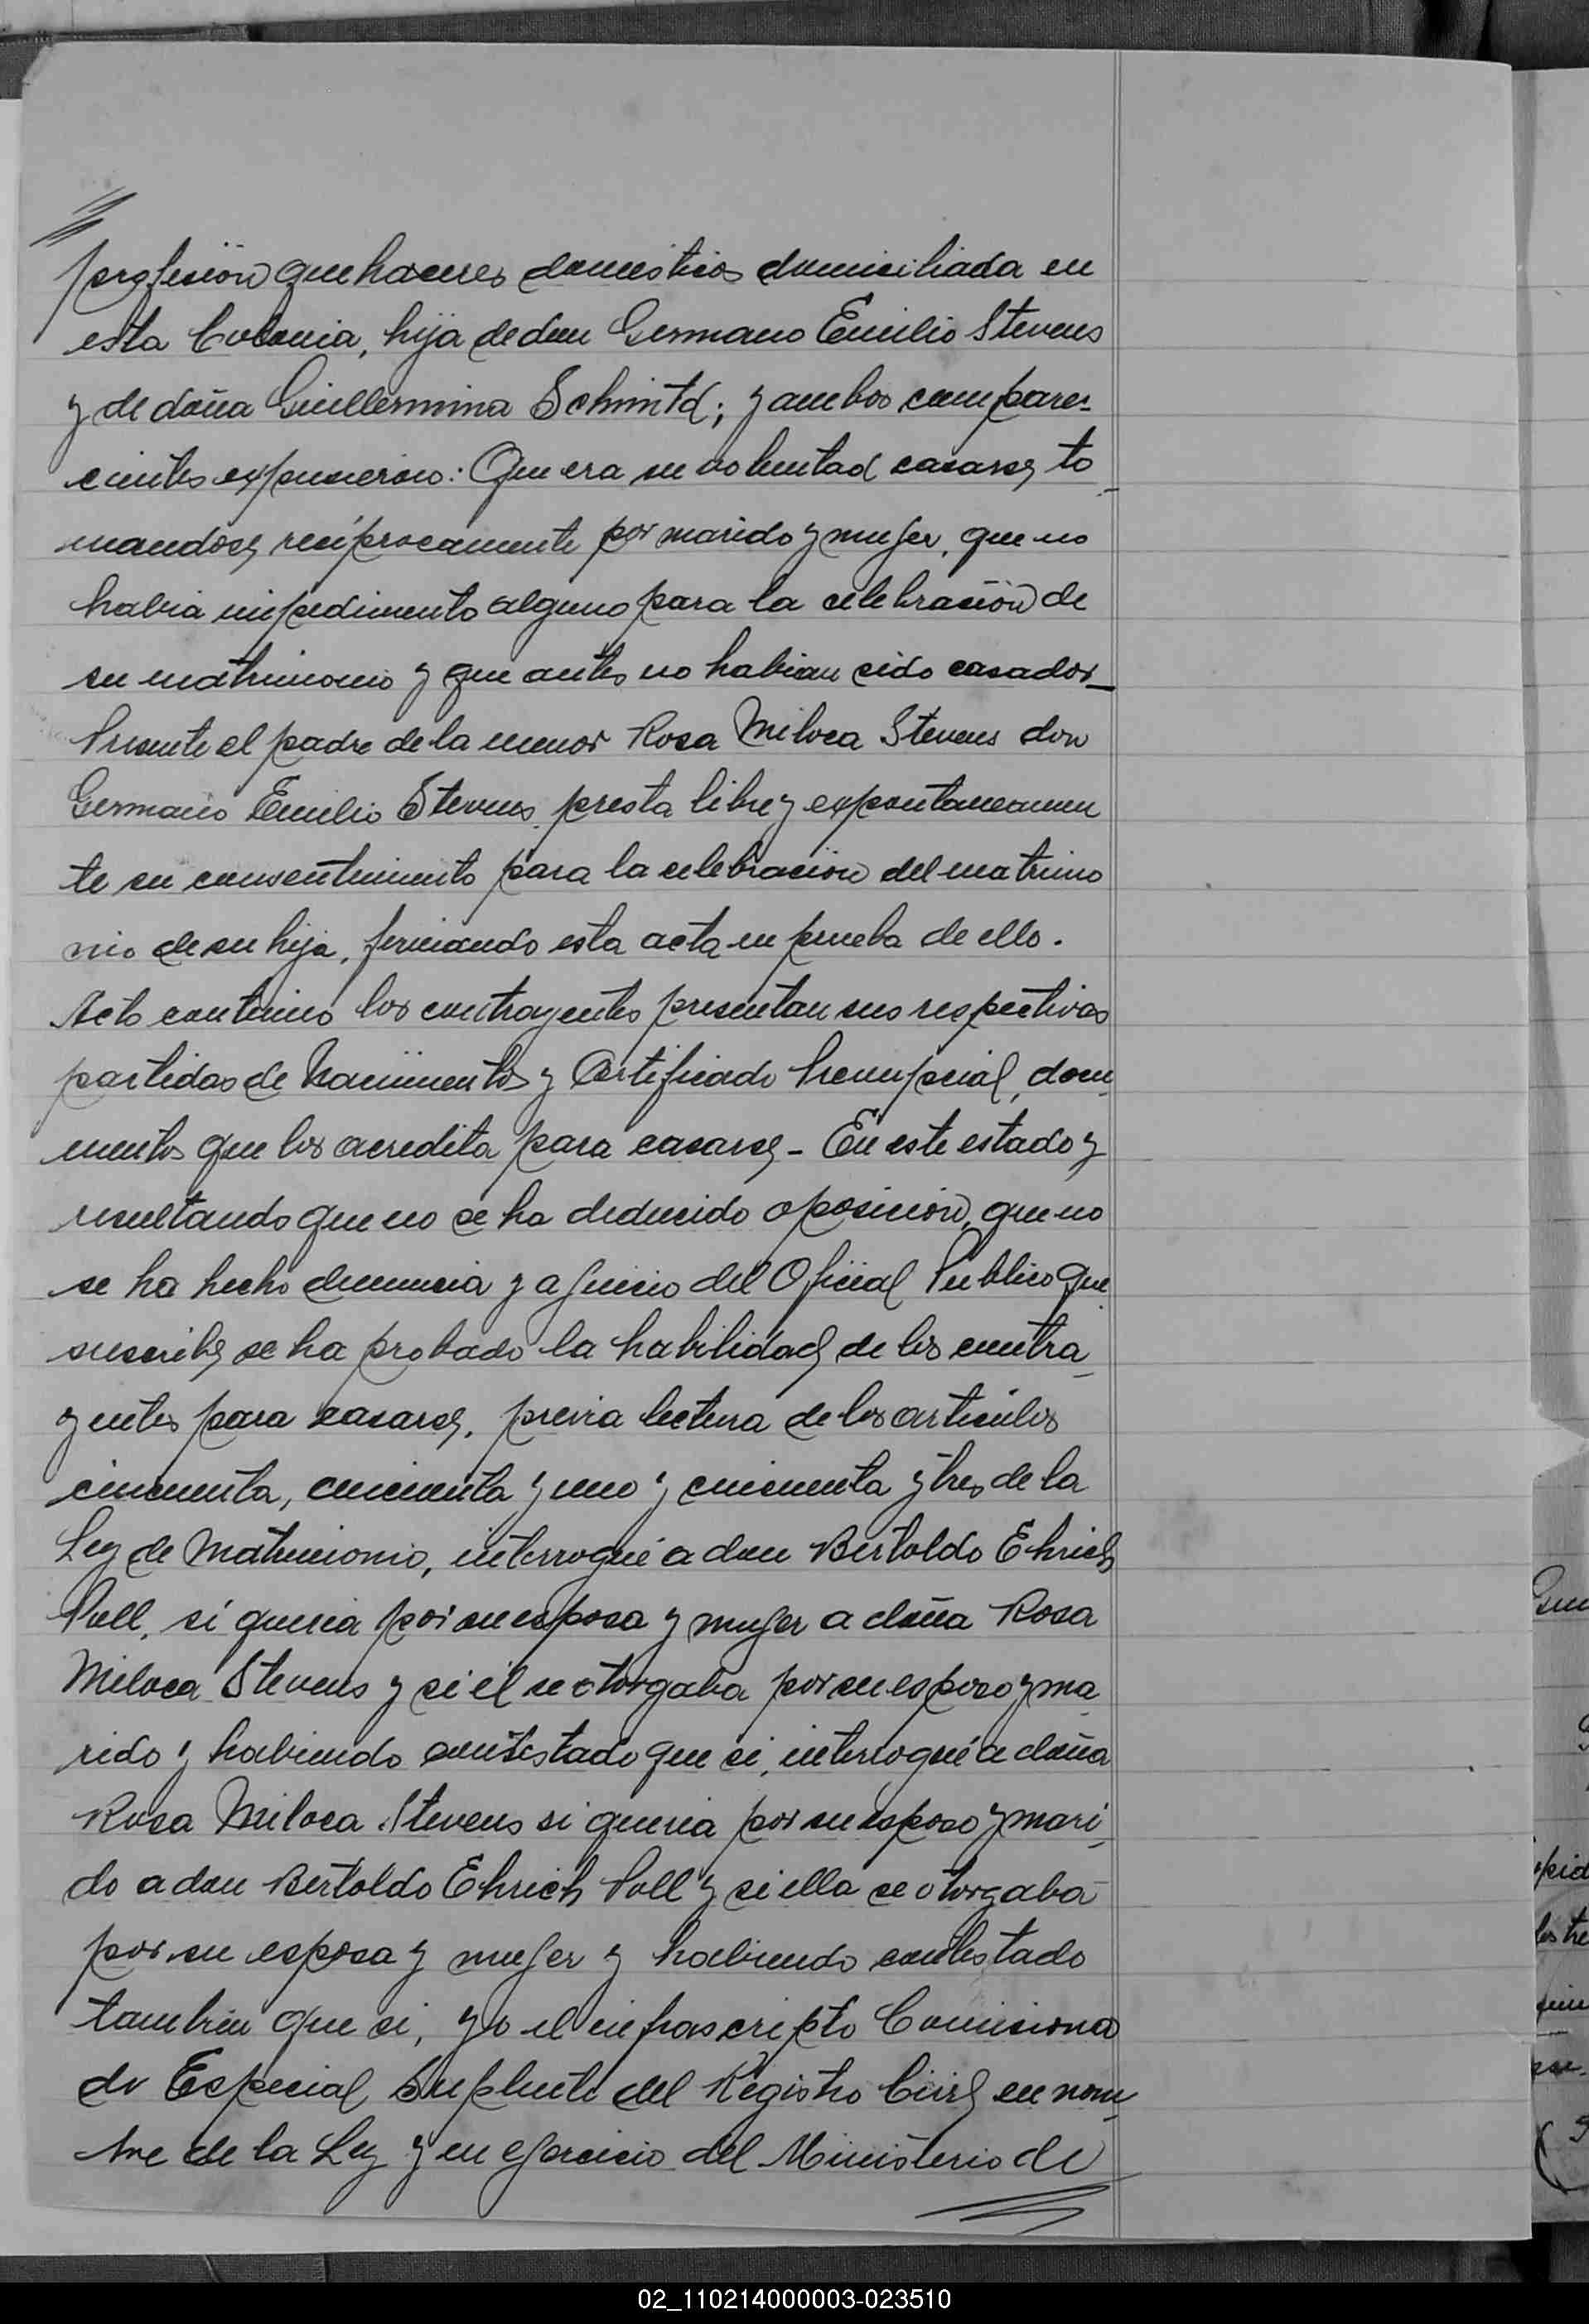 profesión quehaceres domésticos domiciliada en
esta Colonia, hija de don Germano Emilio Stevens
y de doña Guillermina Schmitd; y ambos compare-
cientes expusieron: Que era su voluntad casarse, to_
mandose, recíprocamente por marido y mujer, que no
habia impedimento alguno para la celebración de
su matrimonio y que antes no habian sido casados_
Presente el padre de la menor Rosa Miloca Stevens don
Germano Emilio Stevens, presta libre y expontaneamen
te su consentimiento para la celebración del matrimo
nio de su hija, firmando esta acta en prueba de ello.
Acto continuo los contrayentes presentan sus respectivas
partidas de Nacimientos y Certificado Prenupcial, docu_
mentos que los acredita para casarse - En este estado y
resultando que no se ha deducido oposicion, que no
se ha hecho denuncia y a juicio del Oficial Publico que
suscribe, se ha probado la habilidad de los contra_
yentes para casarse, previa lectura de los articulos
cincuenta, cincuenta y uno y cincuenta y tres de la
Ley de Matrimonio, interrogué a don Bertoldo Ehrich
Poll, si queria por su esposa y mujer a doña Rosa
Miloca Stevens y si él se otorgaba por su esposo y ma_
rido y habiendo contestado que si, interrogué a doña
Rosa Miloca Stevens si queria por su esposo y mari_
do a don Bertoldo Ehrich Poll y si ella se otorgaba
por su esposa y mujer y habiendo contestado
tambien que si, yo el infrascripto Comisiona
do Especial Suplente del Registro Civil, en nom_
bre de la Ley y en ejercicio del Ministerio de
02_110214000003-023510